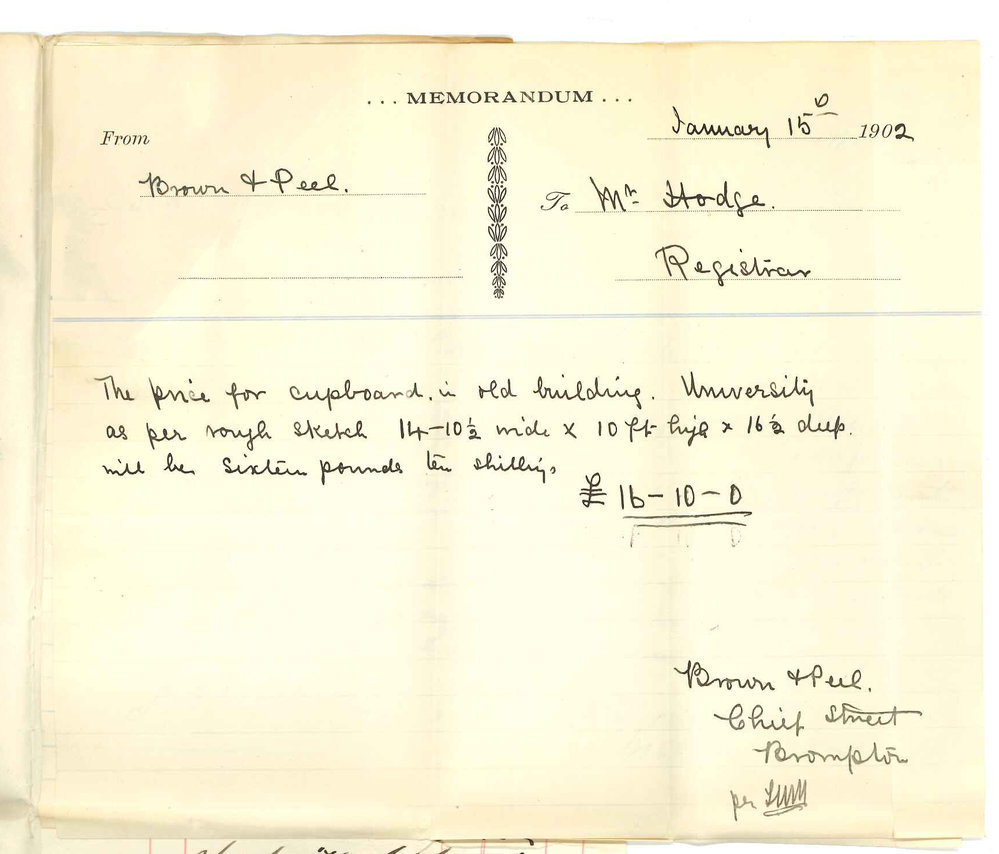 ... MEMORANDUM ...
January 15th 1902
From
Brown & Peel.
To Mr Hodge.
Registrar
The price for cupboard. in old building. University
as per rough sketch 14-10½ wide x 10 ft high x 16½ deep.
will be sixteen pounds ten shillings
£ 16-10-0
Brown & Peel.
Chief Street
Brompton
per